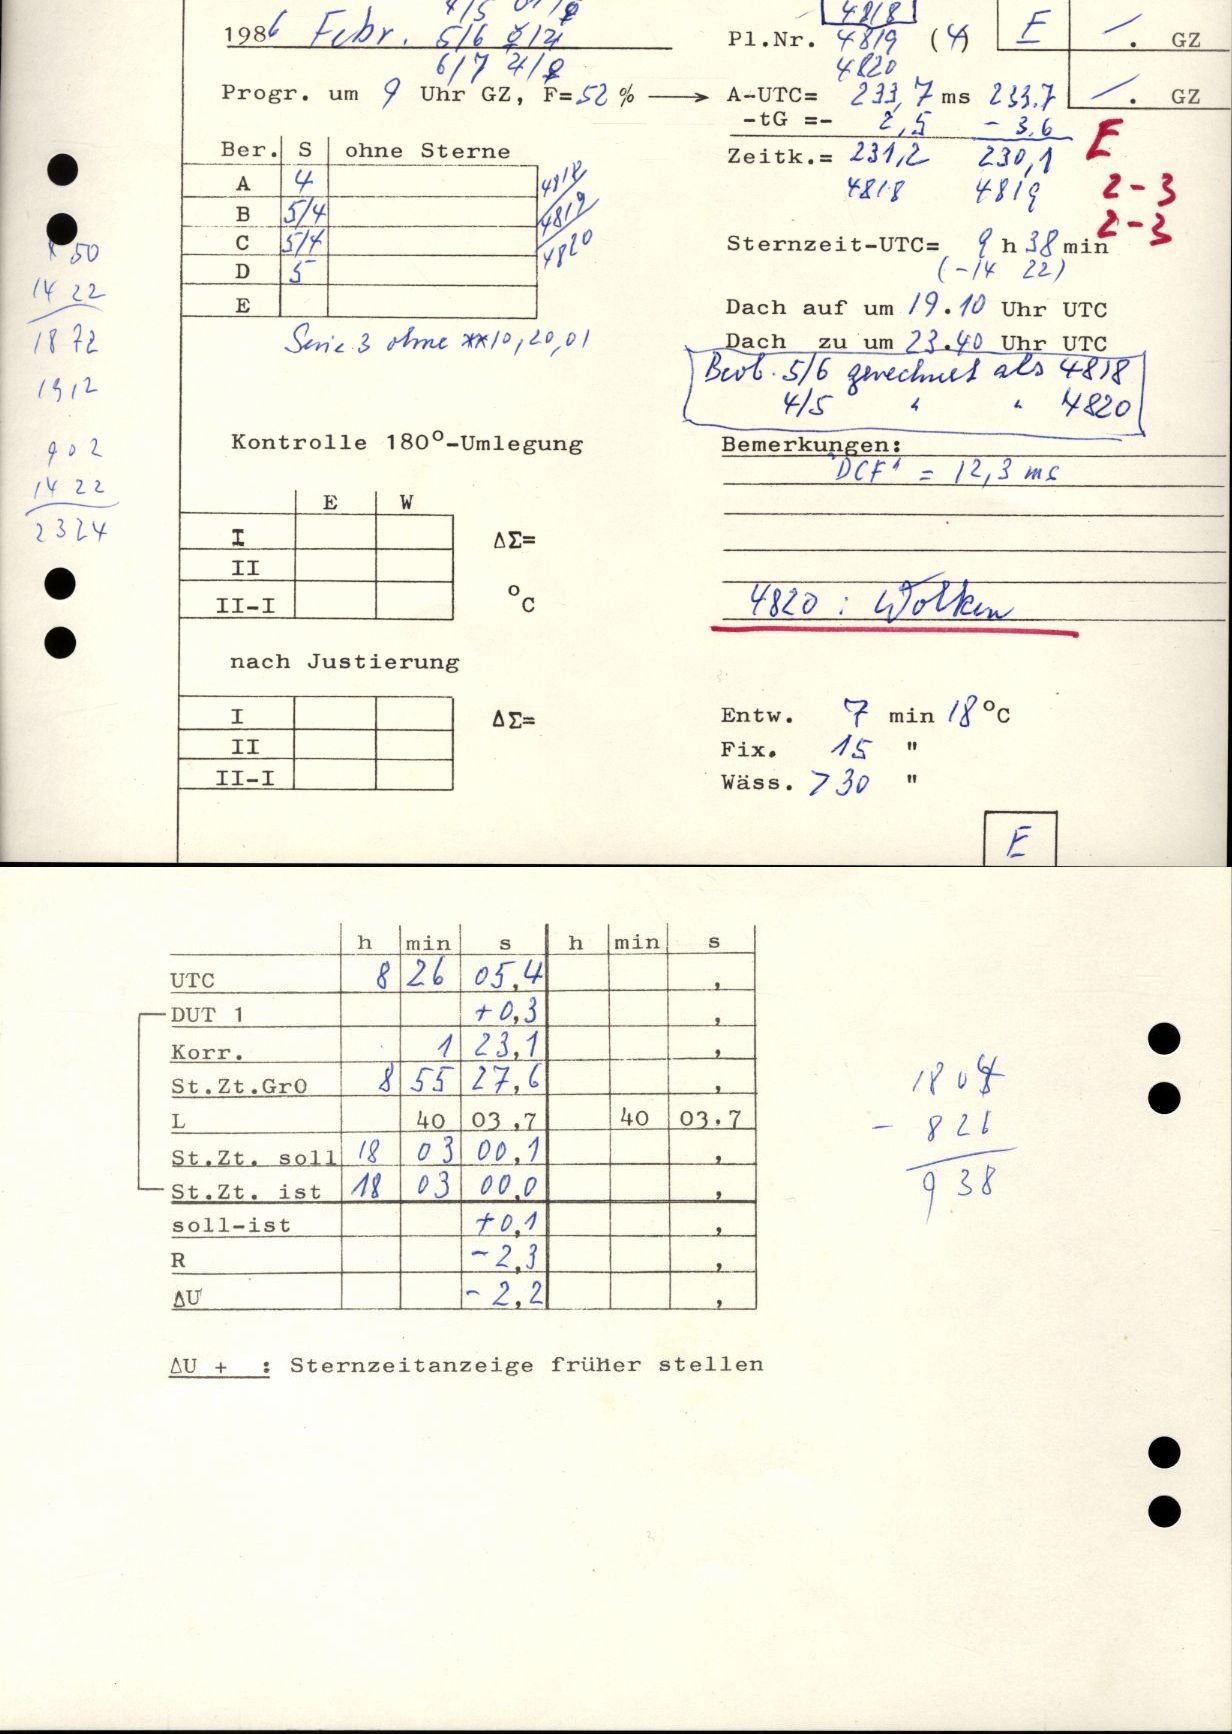 4818
1986 Febr. 5/6
Pl.Nr. 4819 (4) E . GZ
6/7 4820
Progr. um 9 Uhr GZ, F=52 % → A-UTC= 233,7 ms 233.7 . GZ
-tG =- 2,5 - 3,6
Zeitk.= 231,2 230,1 E
4818 4819 2-3
2-3
Ber. S ohne Sterne
A 4 4818
B 5/4 4819
C 5/4 4820
D 5
E
Serie 3 ohne **10,20,01
50
14 22
18 72
1912
902
14 22
2324
Sternzeit-UTC= 9 h 38 min
(-14 22)
Dach auf um 19.10 Uhr UTC
Dach zu um 23.40 Uhr UTC
Beob. 5/6 gerechnet als 4818
4/5 " " 4820
Kontrolle 180°-Umlegung
Bemerkungen:
"DCF" = 12,3 ms
E W
I ΔΣ=
II
II-I °C
4820 : Wolken
nach Justierung
I ΔΣ=
II
II-I
Entw. 7 min 18 °C
Fix. 15 "
Wäss. >30 "
E
h min s h min s
UTC 8 26 05,4 ,
DUT 1 +0,3 ,
Korr. 1 23,1 ,
St.Zt.Gr0 8 55 27,6 ,
L 40 03,7 40 03.7
St.Zt. soll 18 03 00,1 ,
St.Zt. ist 18 03 00,0 ,
soll-ist +0,1 ,
R -2,3 ,
ΔU -2,2 ,
1804
- 826
938
ΔU + : Sternzeitanzeige früher stellen